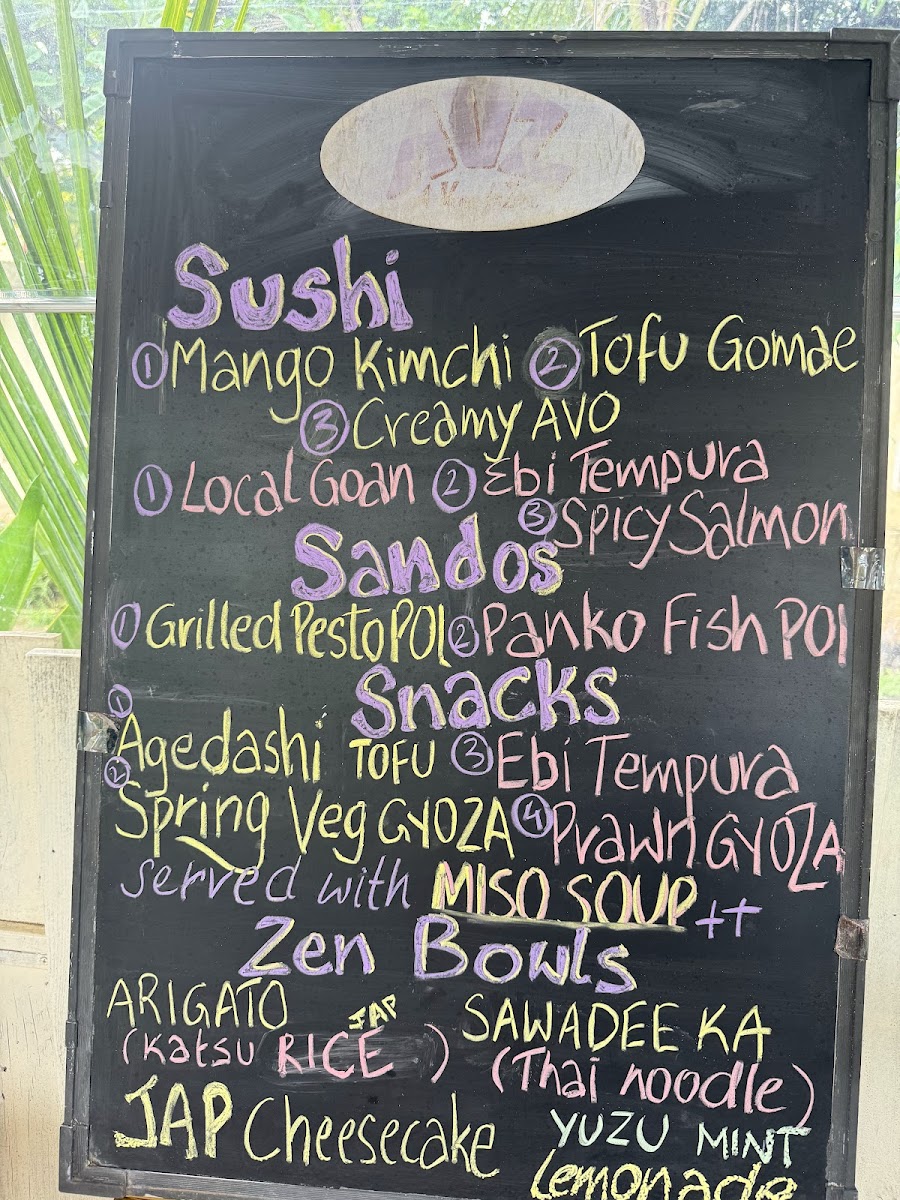 Sushi
① Mango Kimchi ② Tofu Gomae
③ Creamy AVO
① Local Goan ② Ebi Tempura
③ Spicy Salmon
Sandos
① Grilled Pesto POI ② Panko Fish POI
Snacks
① Agedashi TOFU ③ Ebi Tempura
② Spring Veg GYOZA ④ Prawn GYOZA
served with MISO SOUP ++
Zen Bowls
ARIGATO SAWADEE KA
(Katsu JAP RICE ) (Thai noodle)
JAP Cheesecake YUZU MINT
Lemonade